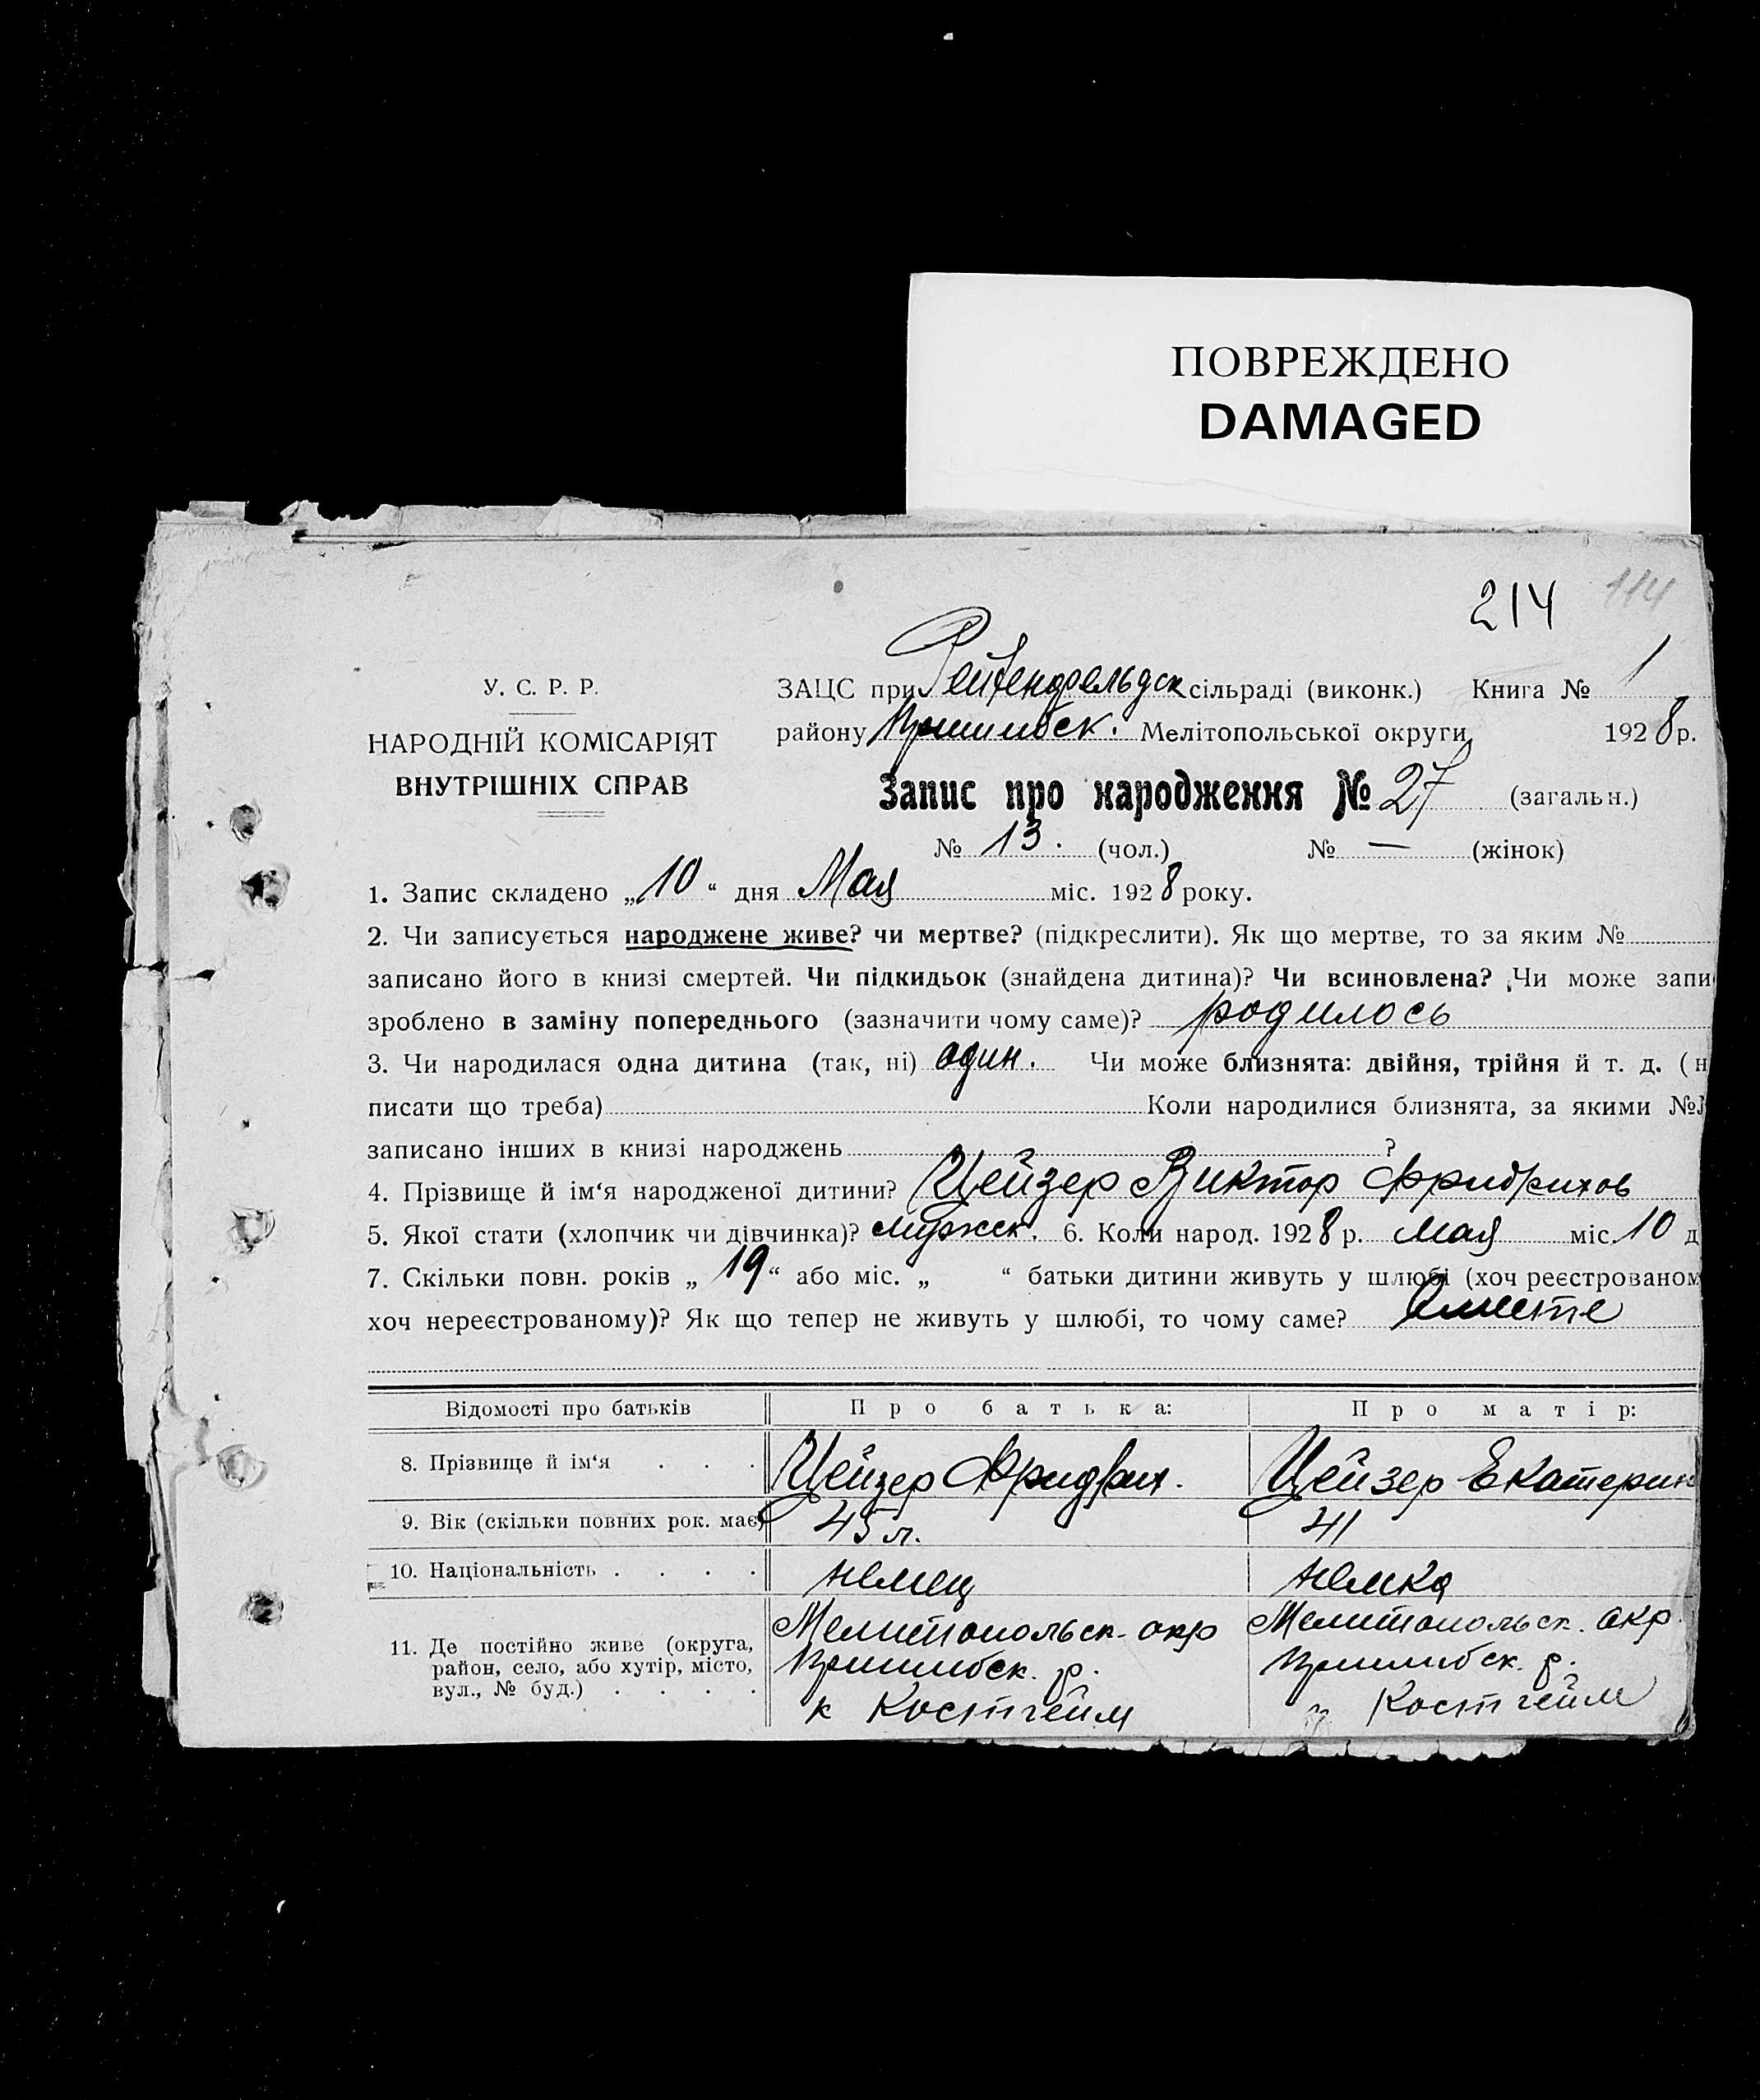 ПОВРЕЖДЕНО
DAMAGED
214 114
У. С. Р. Р.
НАРОДНІЙ КОМІСАРІЯТ
ВНУТРІШНІХ СПРАВ
ЗАЦС при Рейхенфельдск сільраді (виконк.) Книга № 1
району Пришибск. Мелітопольської округи 1928 р.
Запис про народження № 27 (загальн.)
№ 13. (чол.) № — (жінок)
1. Запис складено „10“ дня Мая міс. 1928 року.
2. Чи записується народжене живе? чи мертве? (підкреслити). Як що мертве, то за яким №
записано його в книзі смертей. Чи підкидьок (знайдена дитина)? Чи всиновлена? Чи може запи
зроблено в заміну попереднього (зазначити чому саме)? родилось
3. Чи народилася одна дитина (так, ні) один. Чи може близнята: двійня, трійня й т. д. (н
писати що треба) Коли народилися близнята, за якими №№
записано інших в книзі народжень ?
4. Прізвище й ім‘я народженої дитини? Цейзер Виктор Фридрихов
5. Якої стати (хлопчик чи дівчинка)? мужск. 6. Коли народ. 1928 р. мая міс. 10 д
7. Скільки повн. років „19“ або міс. „ “ батьки дитини живуть у шлюбі (хоч реєстрованом
хоч нереєстрованому)? Як що тепер не живуть у шлюбі, то чому саме? вместе
Відомості про батьків Про батька: Про матір:
8. Прізвище й ім‘я . . . Цейзер Фридрих. Цейзер Екатерин
9. Вік (скільки повних рок. має) 45 л. 41
10. Національність . . . . немец немка
11. Де постійно живе (округа, район, село, або хутір, місто, вул., № буд.) . . . .
Мелитопольск. окр Мелитопольск. окр.
Пришибск. р. Пришибск. р.
к Костгейм Костгейм